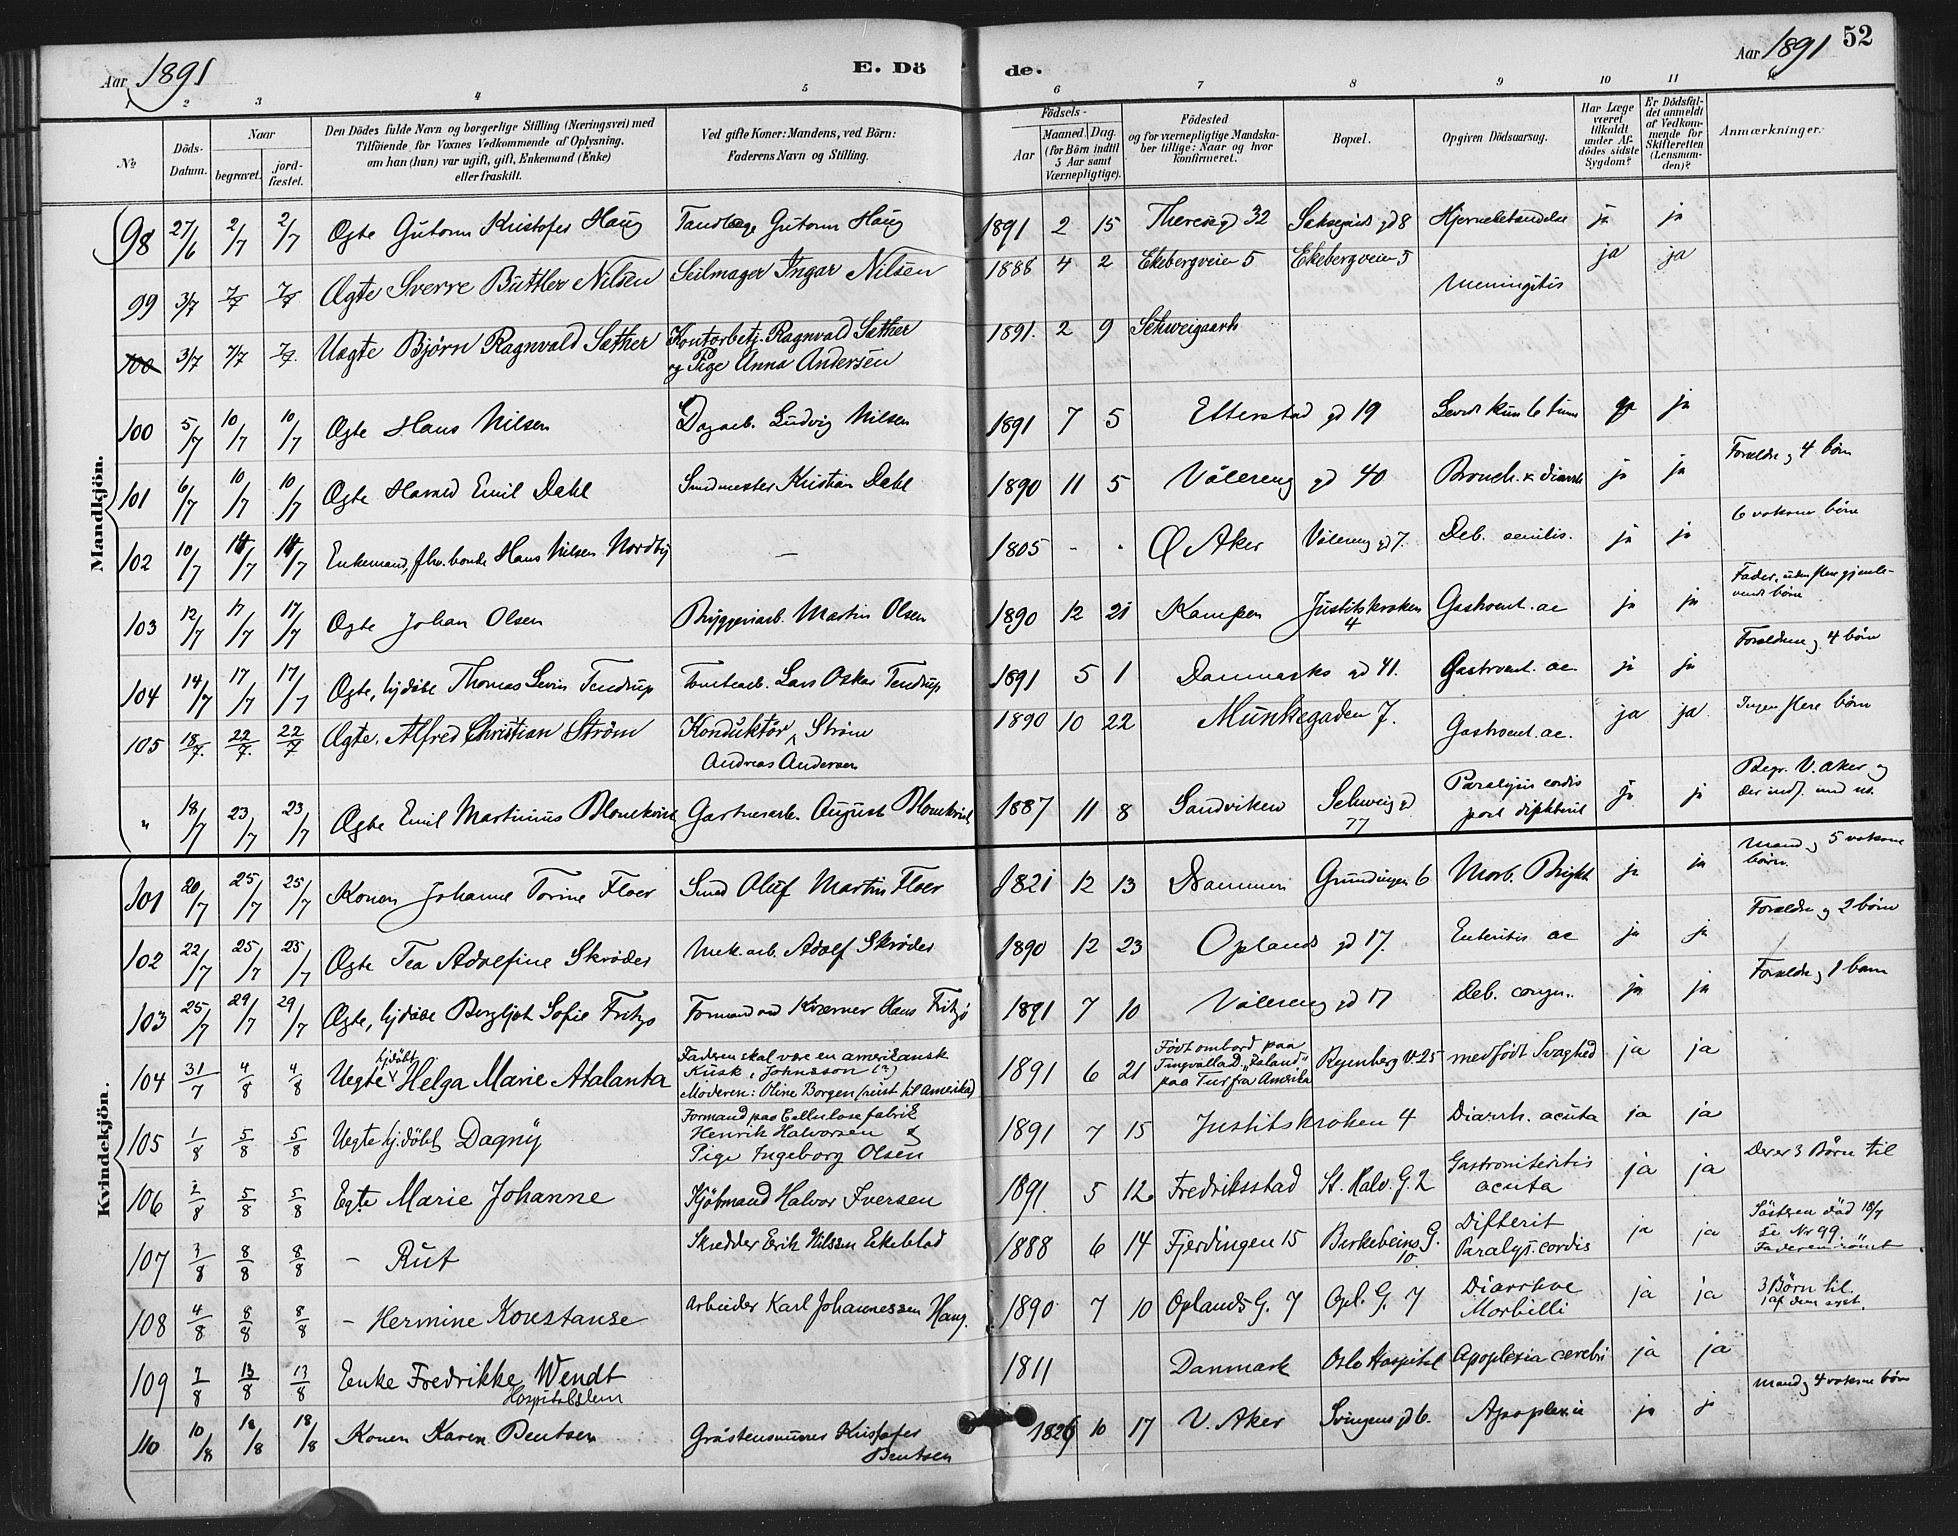 Aar 1891
E. Döde.
Aar 1891
52
1 2 3 4 5 6 7 8 9 10 11
№
Döds-Datum.
Naar
begravet.
jord-fæstet.
Den Dödes fulde Navn og borgerlige Stilling (Næringsvei) med Tilföiende for Voxnes Vedkommende af Oplysning, om han (hun) var ugift, gift, Enkemand (Enke) eller fraskilt.
Ved gifte Koner: Mandens, ved Börn: Faderens Navn og Stilling.
Födsels-
Aar
Maaned. Dag.
(for Börn indtil 5 Aar samt Værnepligtige).
Födested og for værnepligtige Mandskaber tillige: Naar og hvor konfirmeret.
Bopæl.
Opgiven Dödsaarsag.
Har Læge været tilkaldt under Afdödes sidste Sygdom?
Er Dödsfaldet anmeldt af Vedkommende for Skifteretten (Lensmanden)?
Anmærkninger.
Mandkjön.
98 27/6 2/7 2/7 Ægte Gutorm Kristofer Haug Tandlæge Gutorm Haug 1891 2 15 Theresegd 32 gd 8 Hjernebetændelse ja ja
99 3/7 7/7 7/7 Ægte Sverre Buttler Nilsen Seilmager Ingar Nilsen 1888 4 2 Ekebergveien 5 Ekebergveien 5 Meningitis ja ja
100 3/7 7/7 7/7 Uægte Bjørn Ragnvald Sæther Kontorbetj. Ragnvald Sæther og Pige Anna Andersen 1891. 2 9 Schweigaards
100 5/7 10/7 10/7 Ægte Hans Nilsen Dagarb. Ludvig Nilsen 1891 7 5 Etterstad gd 19 Levede kun 6 timer ja
101 6/7 10/7 10/7 Ægte Harald Emil Dahl Smedmester Kristian Dahl 1890 11 5 Vålereng gd 40 Bronch. & diarrh ja ja Forældre og 4 børn
102 10/7 14/7 14/7 Enkemand, fhv. bonde Hans Nilsen Nordby — 1805 - - Ø Aker Vålereng gd 7. Deb. senilis. ja ja 6 voksne børn
103 12/7 17/7 17/7 Ægte Johan Olsen Bryggeriarb. Martin Olsen 1890 12 21 Kampen Justitskroken 4 Gastroent. ac ja ja Fader, uden flere gjenlevende børn
104 14/7 17/7 17/7 Ægte, hjdøbt Thomas Levin Tendrup Tomtearb. Lars Oskar Tendrup 1891 5 1 Danmarks gd 41. Gastroent. ac. ja ja Forældrene og 4 børn
105 18/7 22/7 22/7 Ægte. Alfred Christian Strøm Konduktör Andreas Andersen Strøm 1890 10 22 Munkegaden 7. Gastroent. ac. ja ja Ingen flere børn
" 18/7 23/7 23/7 Ægte Emil Martinius Blomekvist Gartnerarb. August Blomekvist 1887 11 8 Sandviken Schweig gd 77 Paralysis cordis post diphterit ja ja Begr. V. Aker og der indf. med nr.
Kvindekjön.
101 20/7 25/7 25/7 Konen Johanne Torine Floer Smed Oluf Martin Floer 1821 12 13 Drammen Grundingen 6 Morb. Brightii ja ja Mand og 5 voksne børn.
102 22/7 25/7 25/7 Ægte Tea Adolfine Skrøder Mek. arb. Adolf Skrøder 1890 12 23 Oplands gd 17. Enteritis ac ja ja Forældre og 2 børn
103 25/7 29/7 29/7 Ægte, hjdøbt Bergljot Sofie Fritzø Formand ved Kværner Hans Fritzø 1891 7 10 Vålereng gd 17 Deb. congen. ja ja Forældre og 1 barn
104 31/7 4/8 4/8 Uegte hjdöbt Helga Marie Atalanta Faderen skal være en amerikansk Kusk, Johnsson (?) Moderen: Oline Borgen (reist til Amerika) 1891 6 21 Født ombord paa Tingvalla D. "Island" paa Tur fra Amerika Ryenberg V. 25 medfödt Svaghed ja ja
105 1/8 5/8 5/8 Uegte hj. döbt Dagny Formand paa Cellulosefabrik Henrik Halvorsen & Pige Ingeborg Olsen 1891 7 15 Justitskroken 4 Diarrh. acuta ja ja
106 2/8 5/8 5/8 Egte Marie Johanne Kjöbmand Halvor Iversen 1891. 5 12. Fredriksstad St. Halv. G. 2 Gastroniteritis acuta ja ja Der er 3 Børn til
107 3/8 8/8 8/8 – Rut Skrædder Erik Nilssen Ekeblad 1888 6 14 Fjerdingen 15 Birkebeins G. 10. Difterit Paralys. cordis ja ja Söstren död 18/7 Se Nr 99. Faderen römt
108 4/8 8/8 8/8 – Hermine Konstanse Arbeider Karl Johannessen Haug. 1890 7 10 Oplands G. 7 Opl. G. 7 Diarrhoe Morbilli ja ja 3 Børn til. 1 af dem sygt.
109 7/8 13/8 13/8 Enke Fredrikke Wendt Hospitalslem 1811 Danmark Oslo Hospital Apoplexia cerebri ja ja
110 10/8 18/8 18/8 Konen Karen Bentsen Gråstensmurer Kristofer Bentsen 1826 10 17 V. Aker Svingens gd 6. Apoplexie ja ja Mand og 4 voksne børn